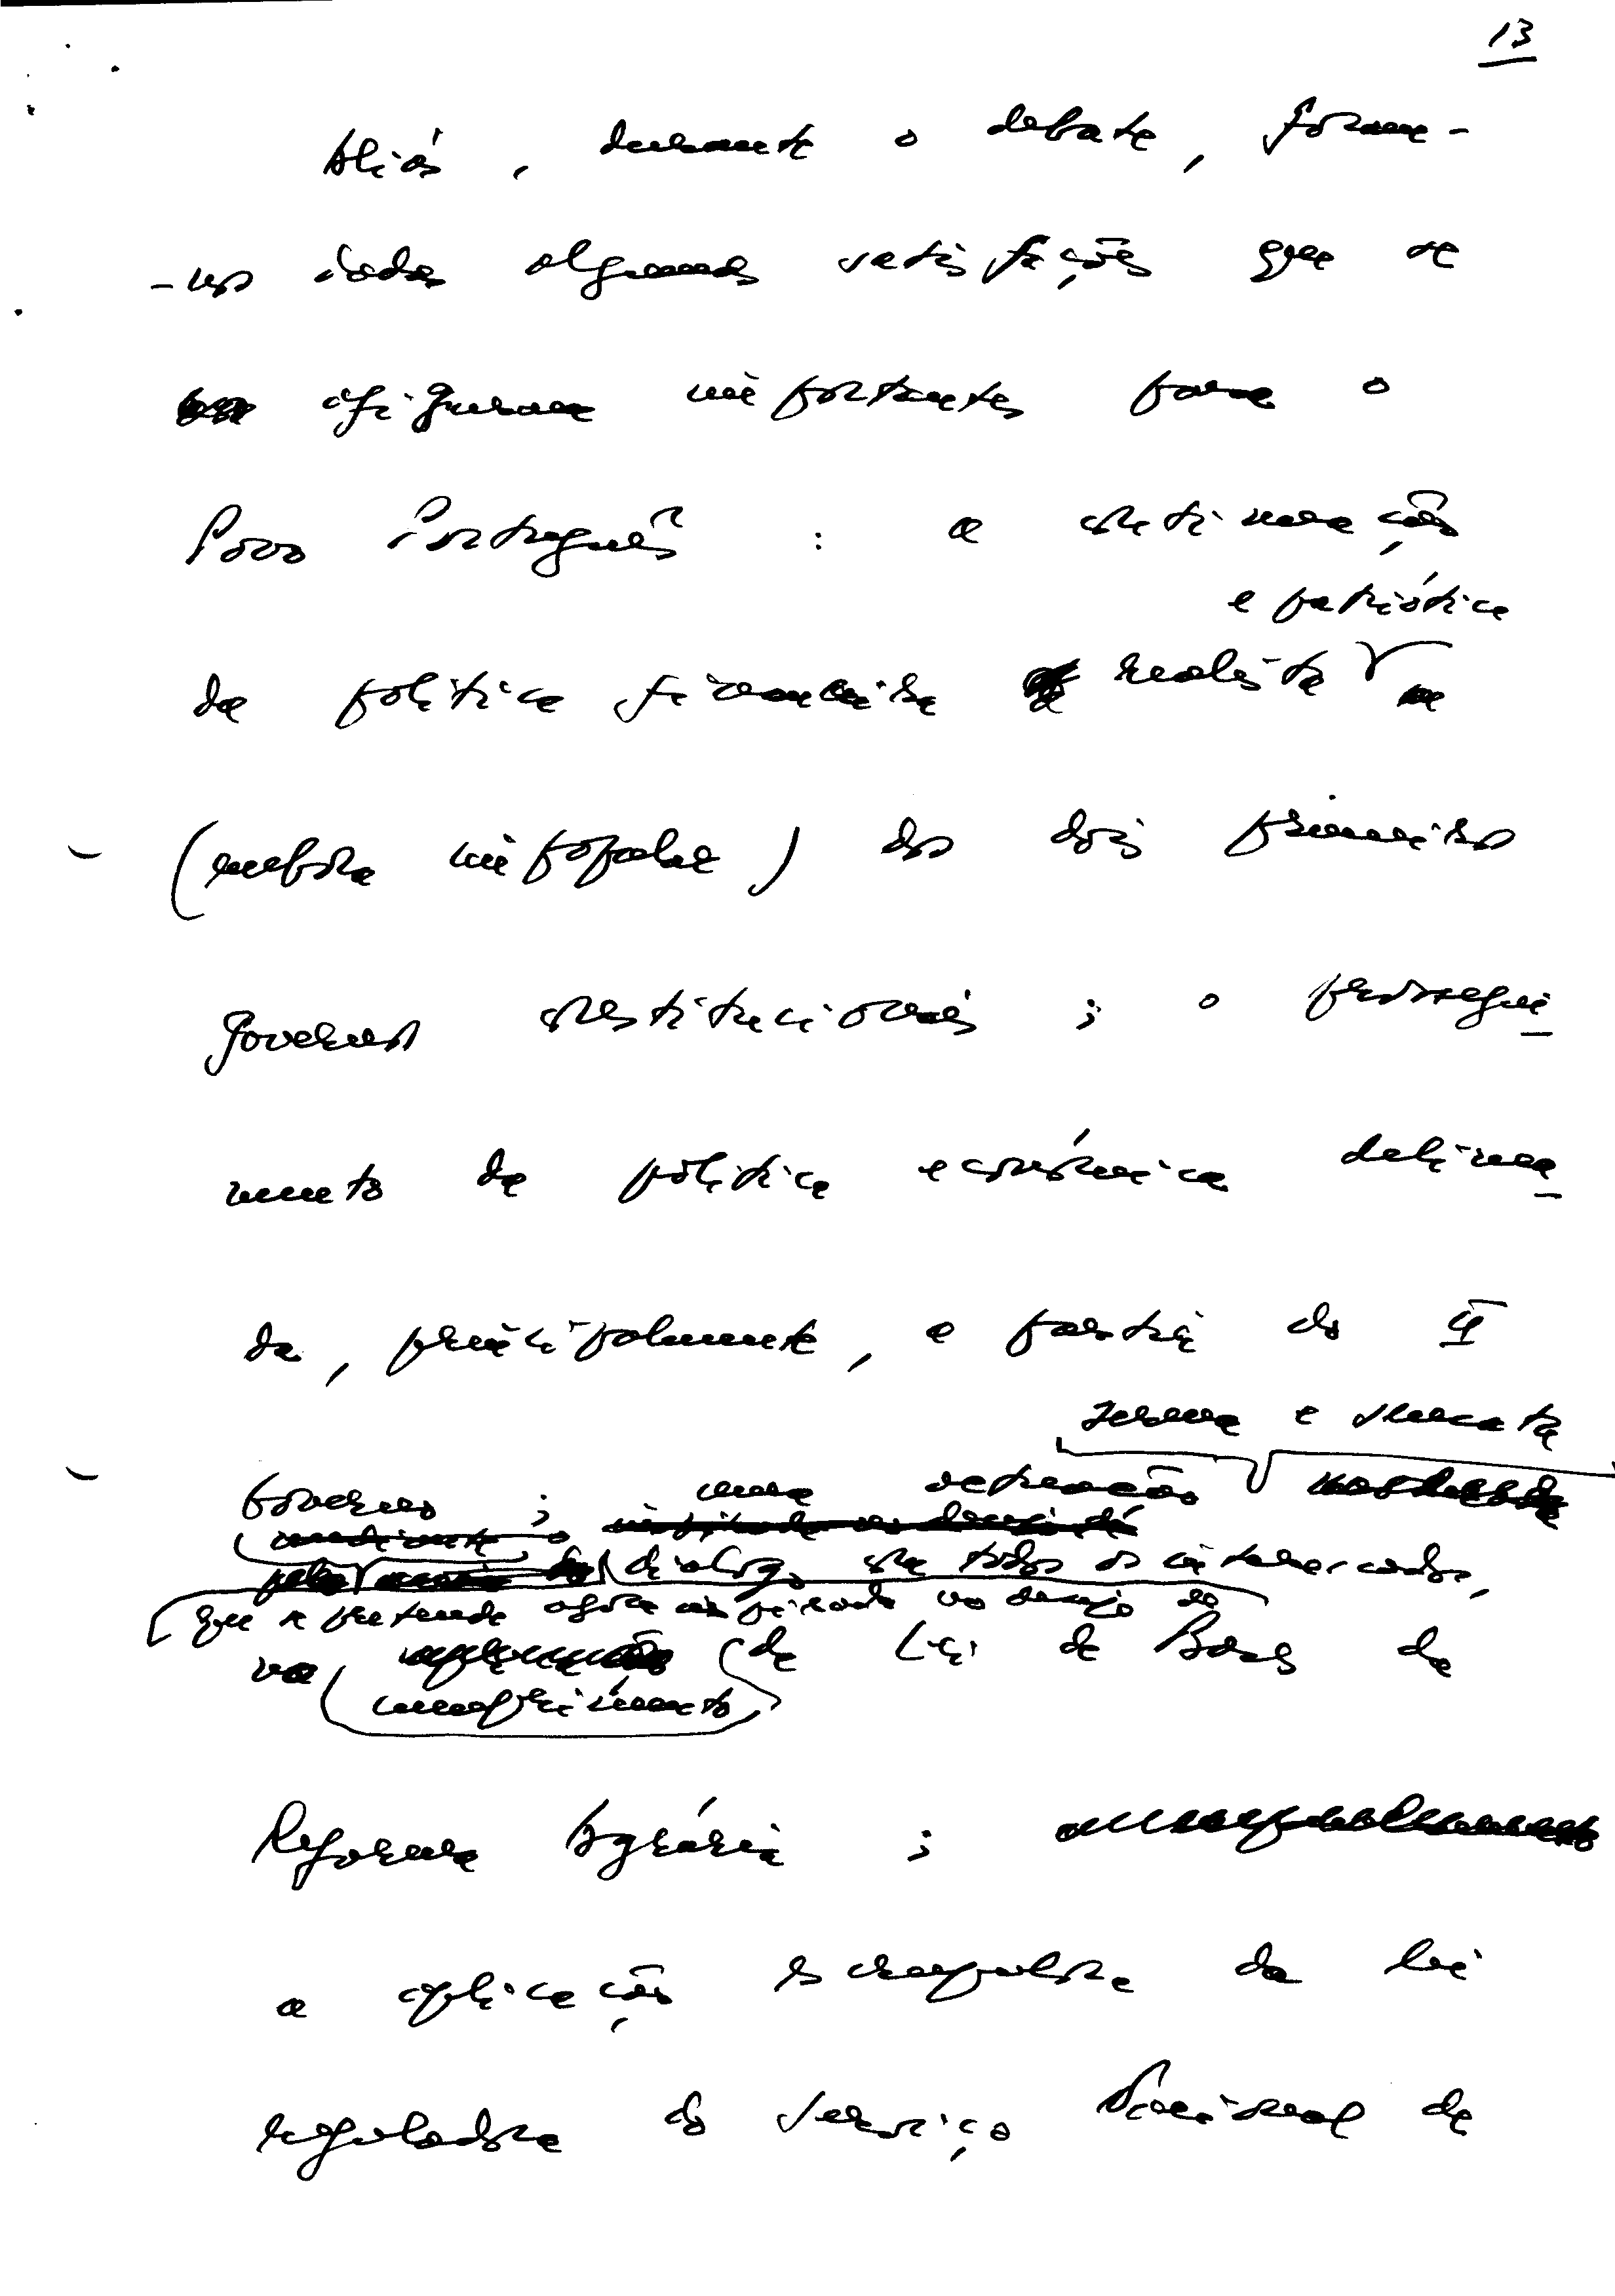 13
Aliás, durante o debate, foram-
-nos dadas algumas satisfações que se
afiguram importantes para o
Povo Português : a continuação
e patriótica
da política financeira realista
(embora impopular) dos dois primeiros
Governos constitucionais ; o prossegui-
mento da política económica delinea-
da, principalmente, a partir do II
serena e sensata
Governo ; uma actuação
diálogo com todos os interessados,
que se pretende agora inspirada no desejo do
no
cumprimento da Lei de Bases da
Reforma Agrária ;
a aplicação escrupulosa da lei
reguladora do Serviço Nacional de